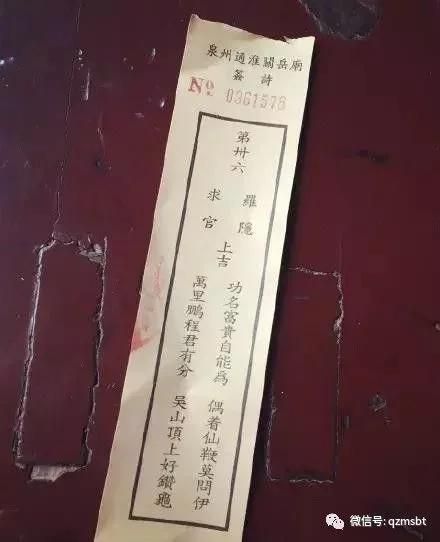 泉州通淮關岳廟
簽詩
No. 0361578
第卅六
羅隱
求官
上吉
功名富貴自能為
偶着仙鞭莫問伊
萬里鵬程君有分
吳山頂上好鑽龜
微信号: qzmsbt